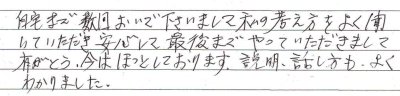 自宅まで数回おいで下さいまして私の考え方をよく聞
いていただき安心して最後までやっていただきまして
有がとう、今はほっとしております。説明、話し方も、よく
わかりました。